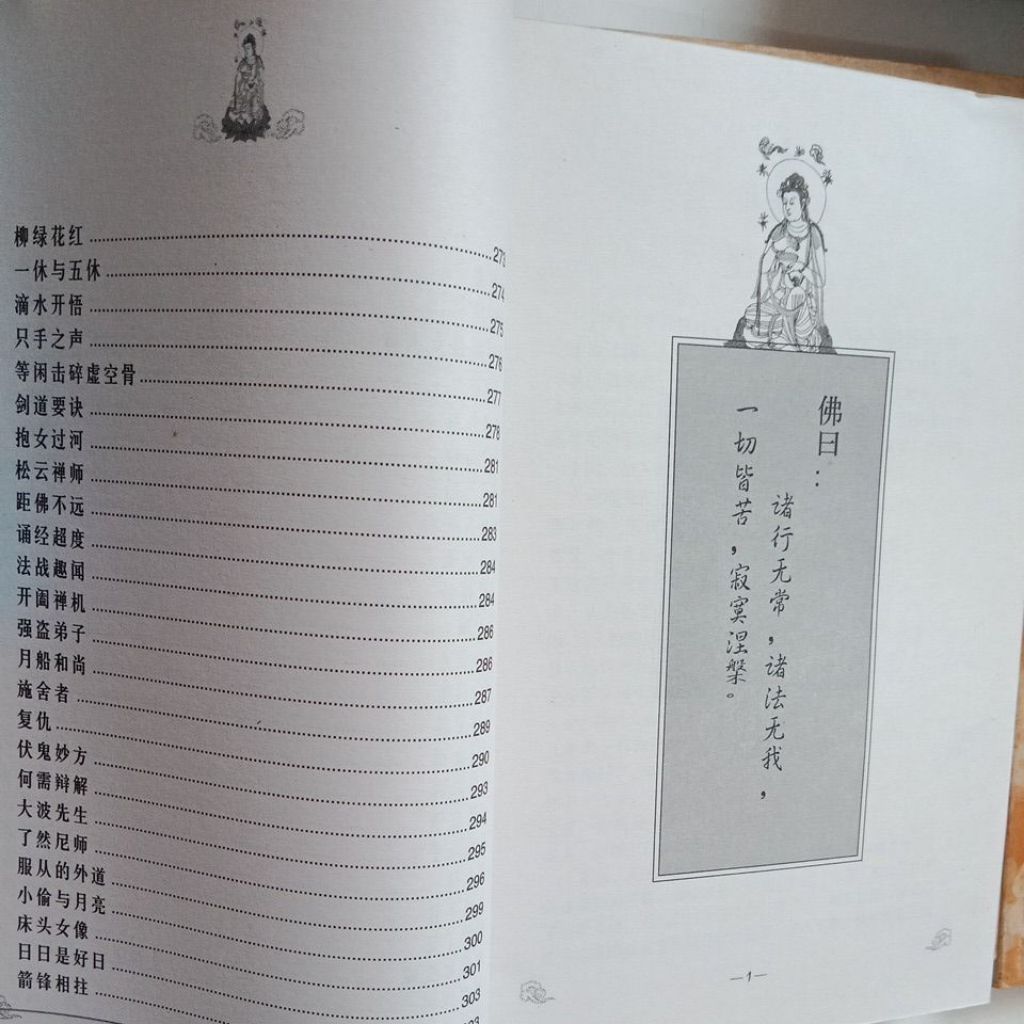 柳绿花红 273
一休与五休 274
滴水开悟 275
只手之声 276
等闲击碎虚空骨 277
剑道要诀 278
抱女过河 281
松云禅师 281
距佛不远 283
诵经超度 284
法战趣闻 284
开阖禅机 286
强盗弟子 286
月船和尚 287
施舍者 289
复仇 290
伏鬼妙方 293
何需辩解 294
大波先生 295
了然尼师 296
服从的外道 299
小偷与月亮 300
床头女像 301
日日是好日 303
箭锋相拄
佛曰：
诸行无常，诸法无我，
一切皆苦，寂寞涅槃。
—1—